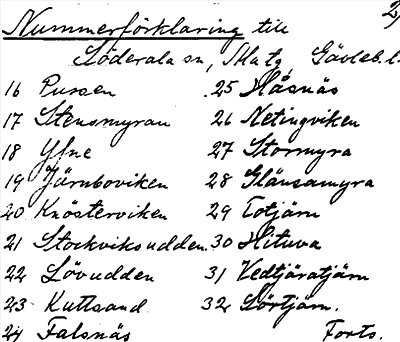 2,
Nummerförklaring till
Söderala sn, Gävleb. l.
16 Pussen 25 Håsnäs
17 Stensmyran 26 Netingviken
18 Yfne 27 Stormyra
19 Järnboviken 28 Glänsamyra
20 Knösterviken 29 Totjärn
21 Stockviksudden 30 Hituva
22 Lövudden 31 Vedtjäratjärn
23 Kuttsand 32 Lörtjärn.
24 Falsnäs Forts.